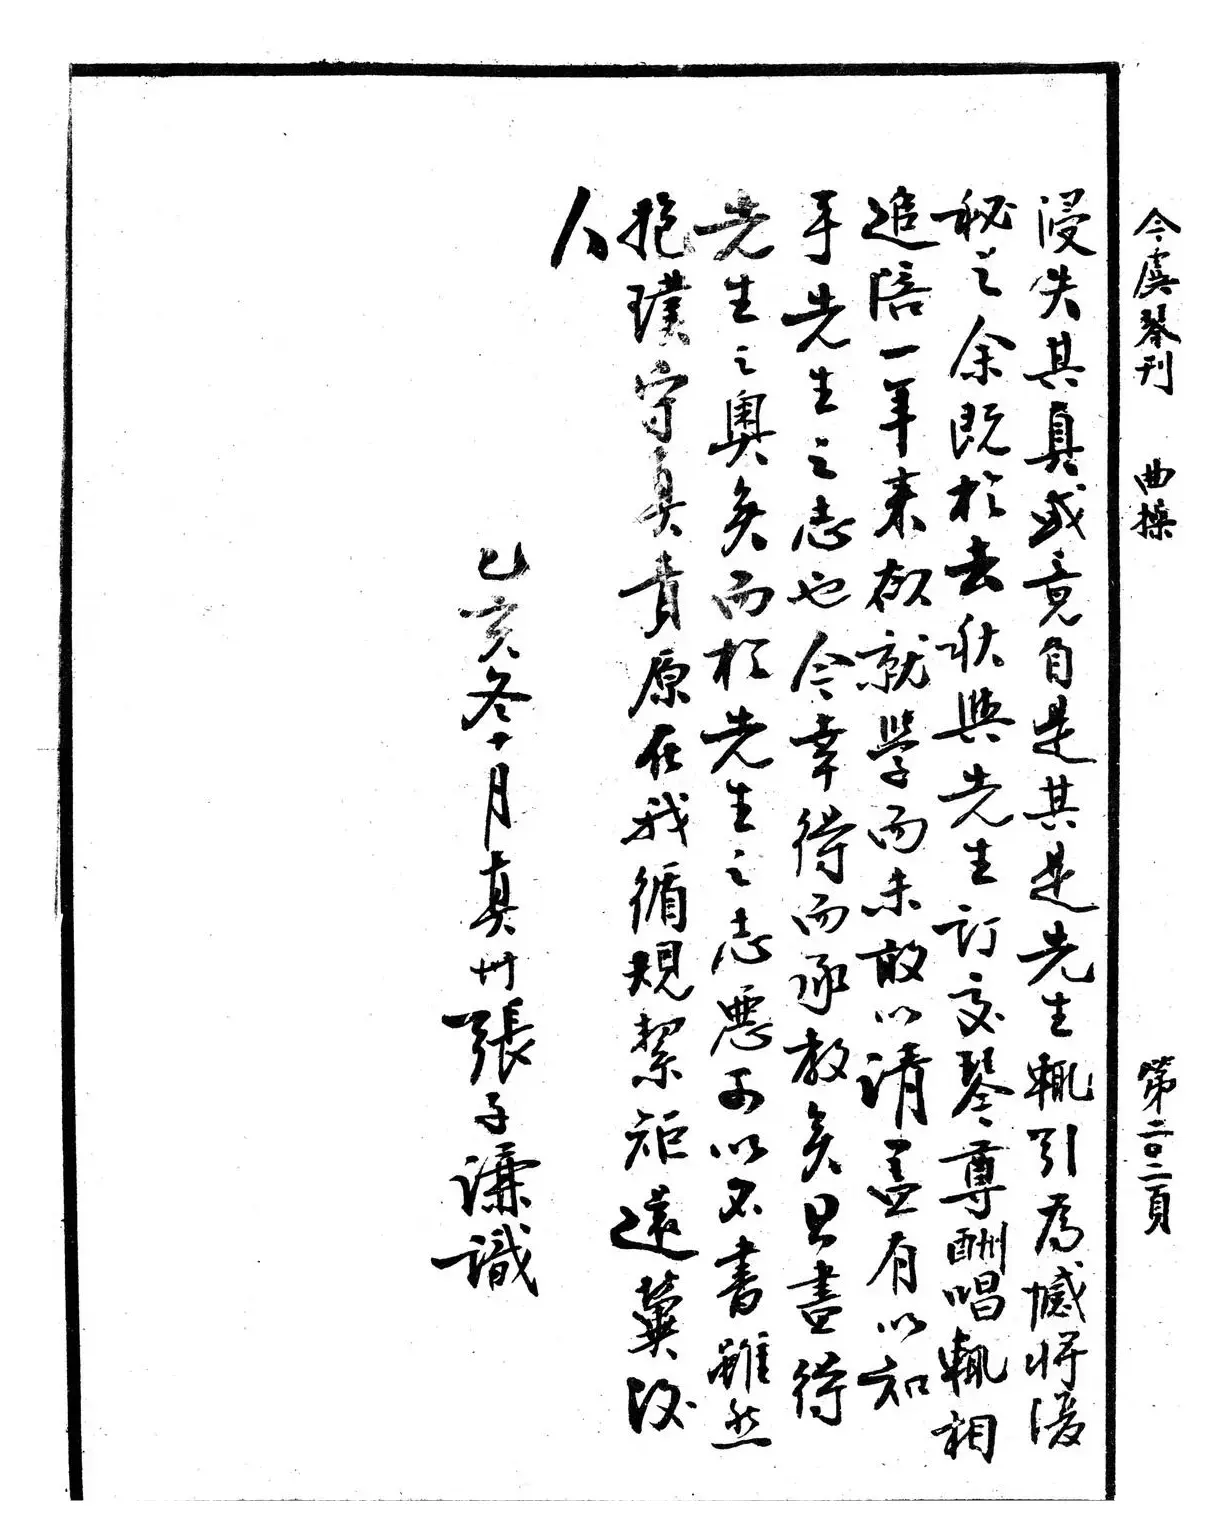 今虞琴刊　曲操　第二〇二頁
浸失其真或竟自是其是先生輒引為憾將復
秘之余既於去秋與先生訂交琴尊酬唱輒相
追陪一年來欲就學而未敢以請蓋有以知
乎先生之志也今幸得而承教矣且盡得
先生之奧矣而於先生之志惡可以不書雖然
抱璞守真責原在我循規絜矩遠冀後
人
乙亥冬十月真州張子謙識